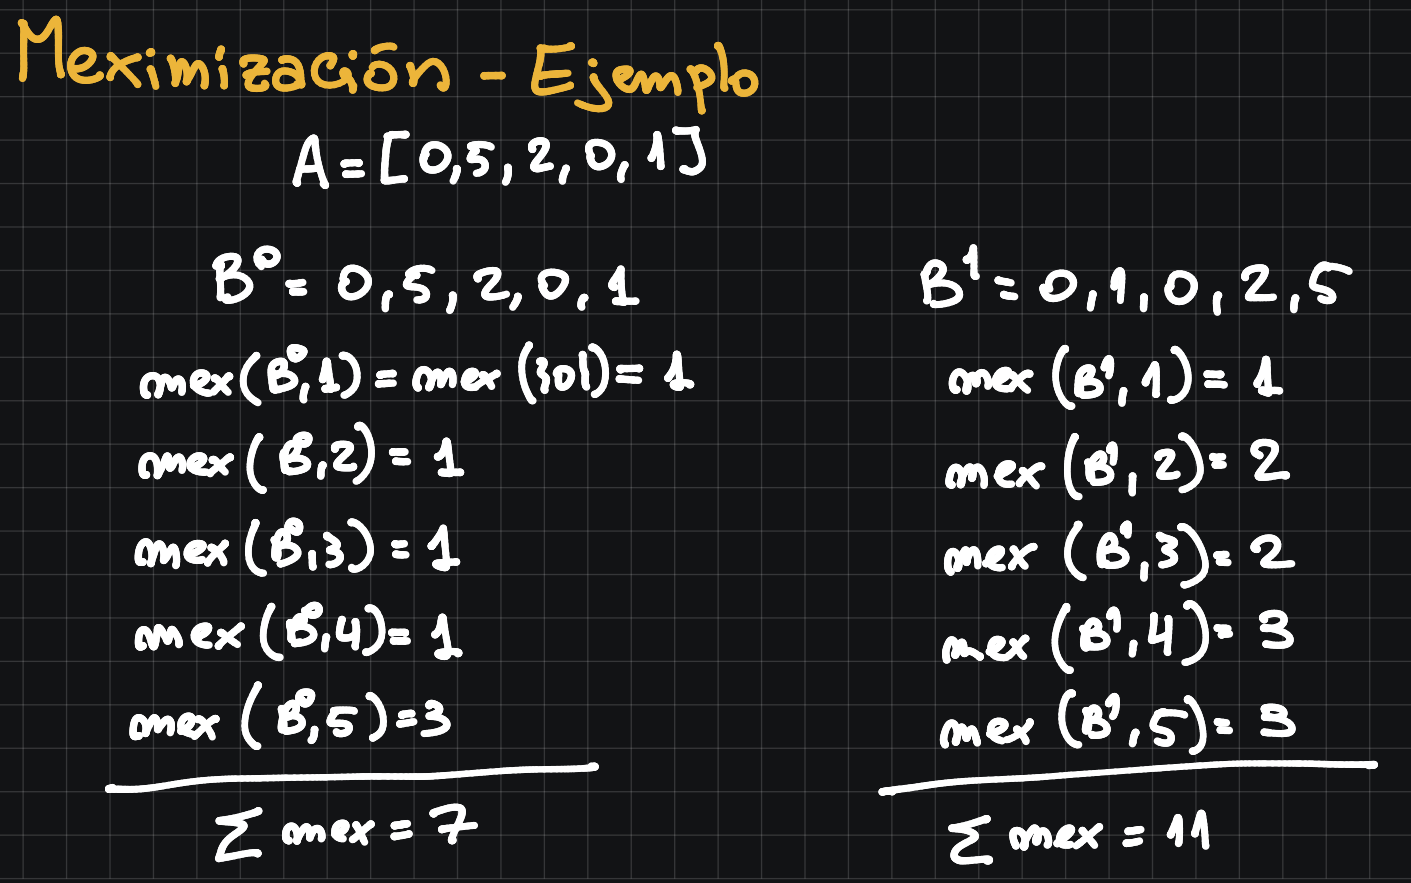 Meximización - Ejemplo
A = [0,5,2,0,1]
B⁰ = 0,5,2,0,1
mex(B⁰,1) = mex({0}) = 1
mex(B⁰,2) = 1
mex(B⁰,3) = 1
mex(B⁰,4) = 1
mex(B⁰,5) = 3
∑ mex = 7
B¹ = 0,1,0,2,5
mex(B¹,1) = 1
mex(B¹,2) = 2
mex(B¹,3) = 2
mex(B¹,4) = 3
mex(B¹,5) = 3
∑ mex = 11